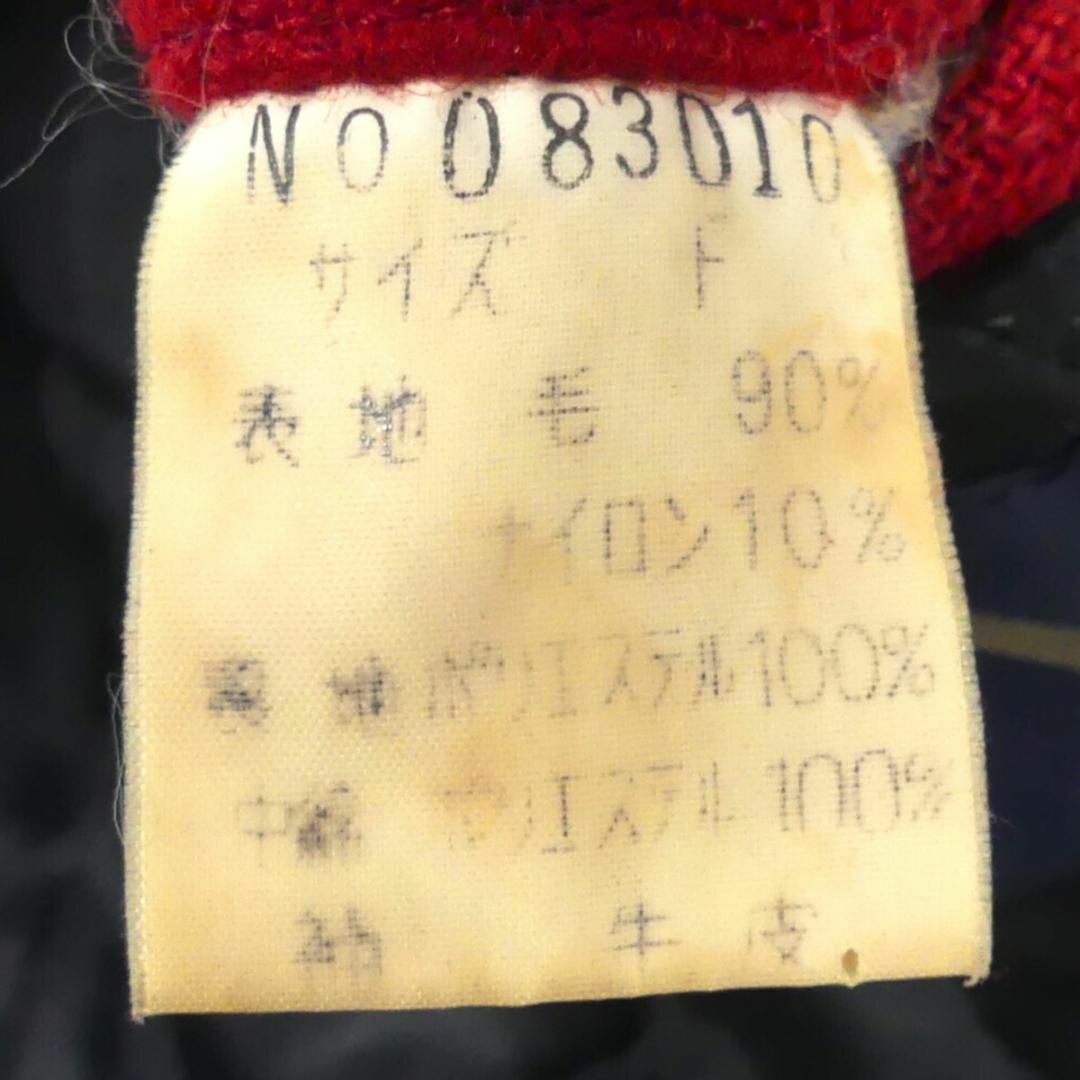 No 083010
サイズ F
表地 毛 90%
ナイロン 10%
裏地 ポリエステル 100%
中綿 ポリエステル 100%
袖 牛皮